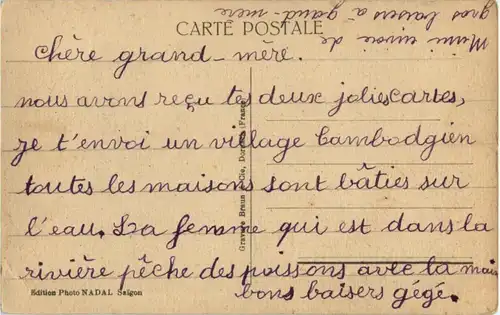 CARTE POSTALE
Mimi envoie de
gros baisers à gand-mère
chère grand-mère.
nous avons reçu tes deux joliescartes,
je t'envoi un village Cambodgien
toutes les maisons sont bâties sur
l'eau. La femme qui est dans la
rivière pêche des poissons avec la main
bons baisers gégé.
Edition Photo NADAL Saïgon
Gravure Braun & Cie, Dornach (France)